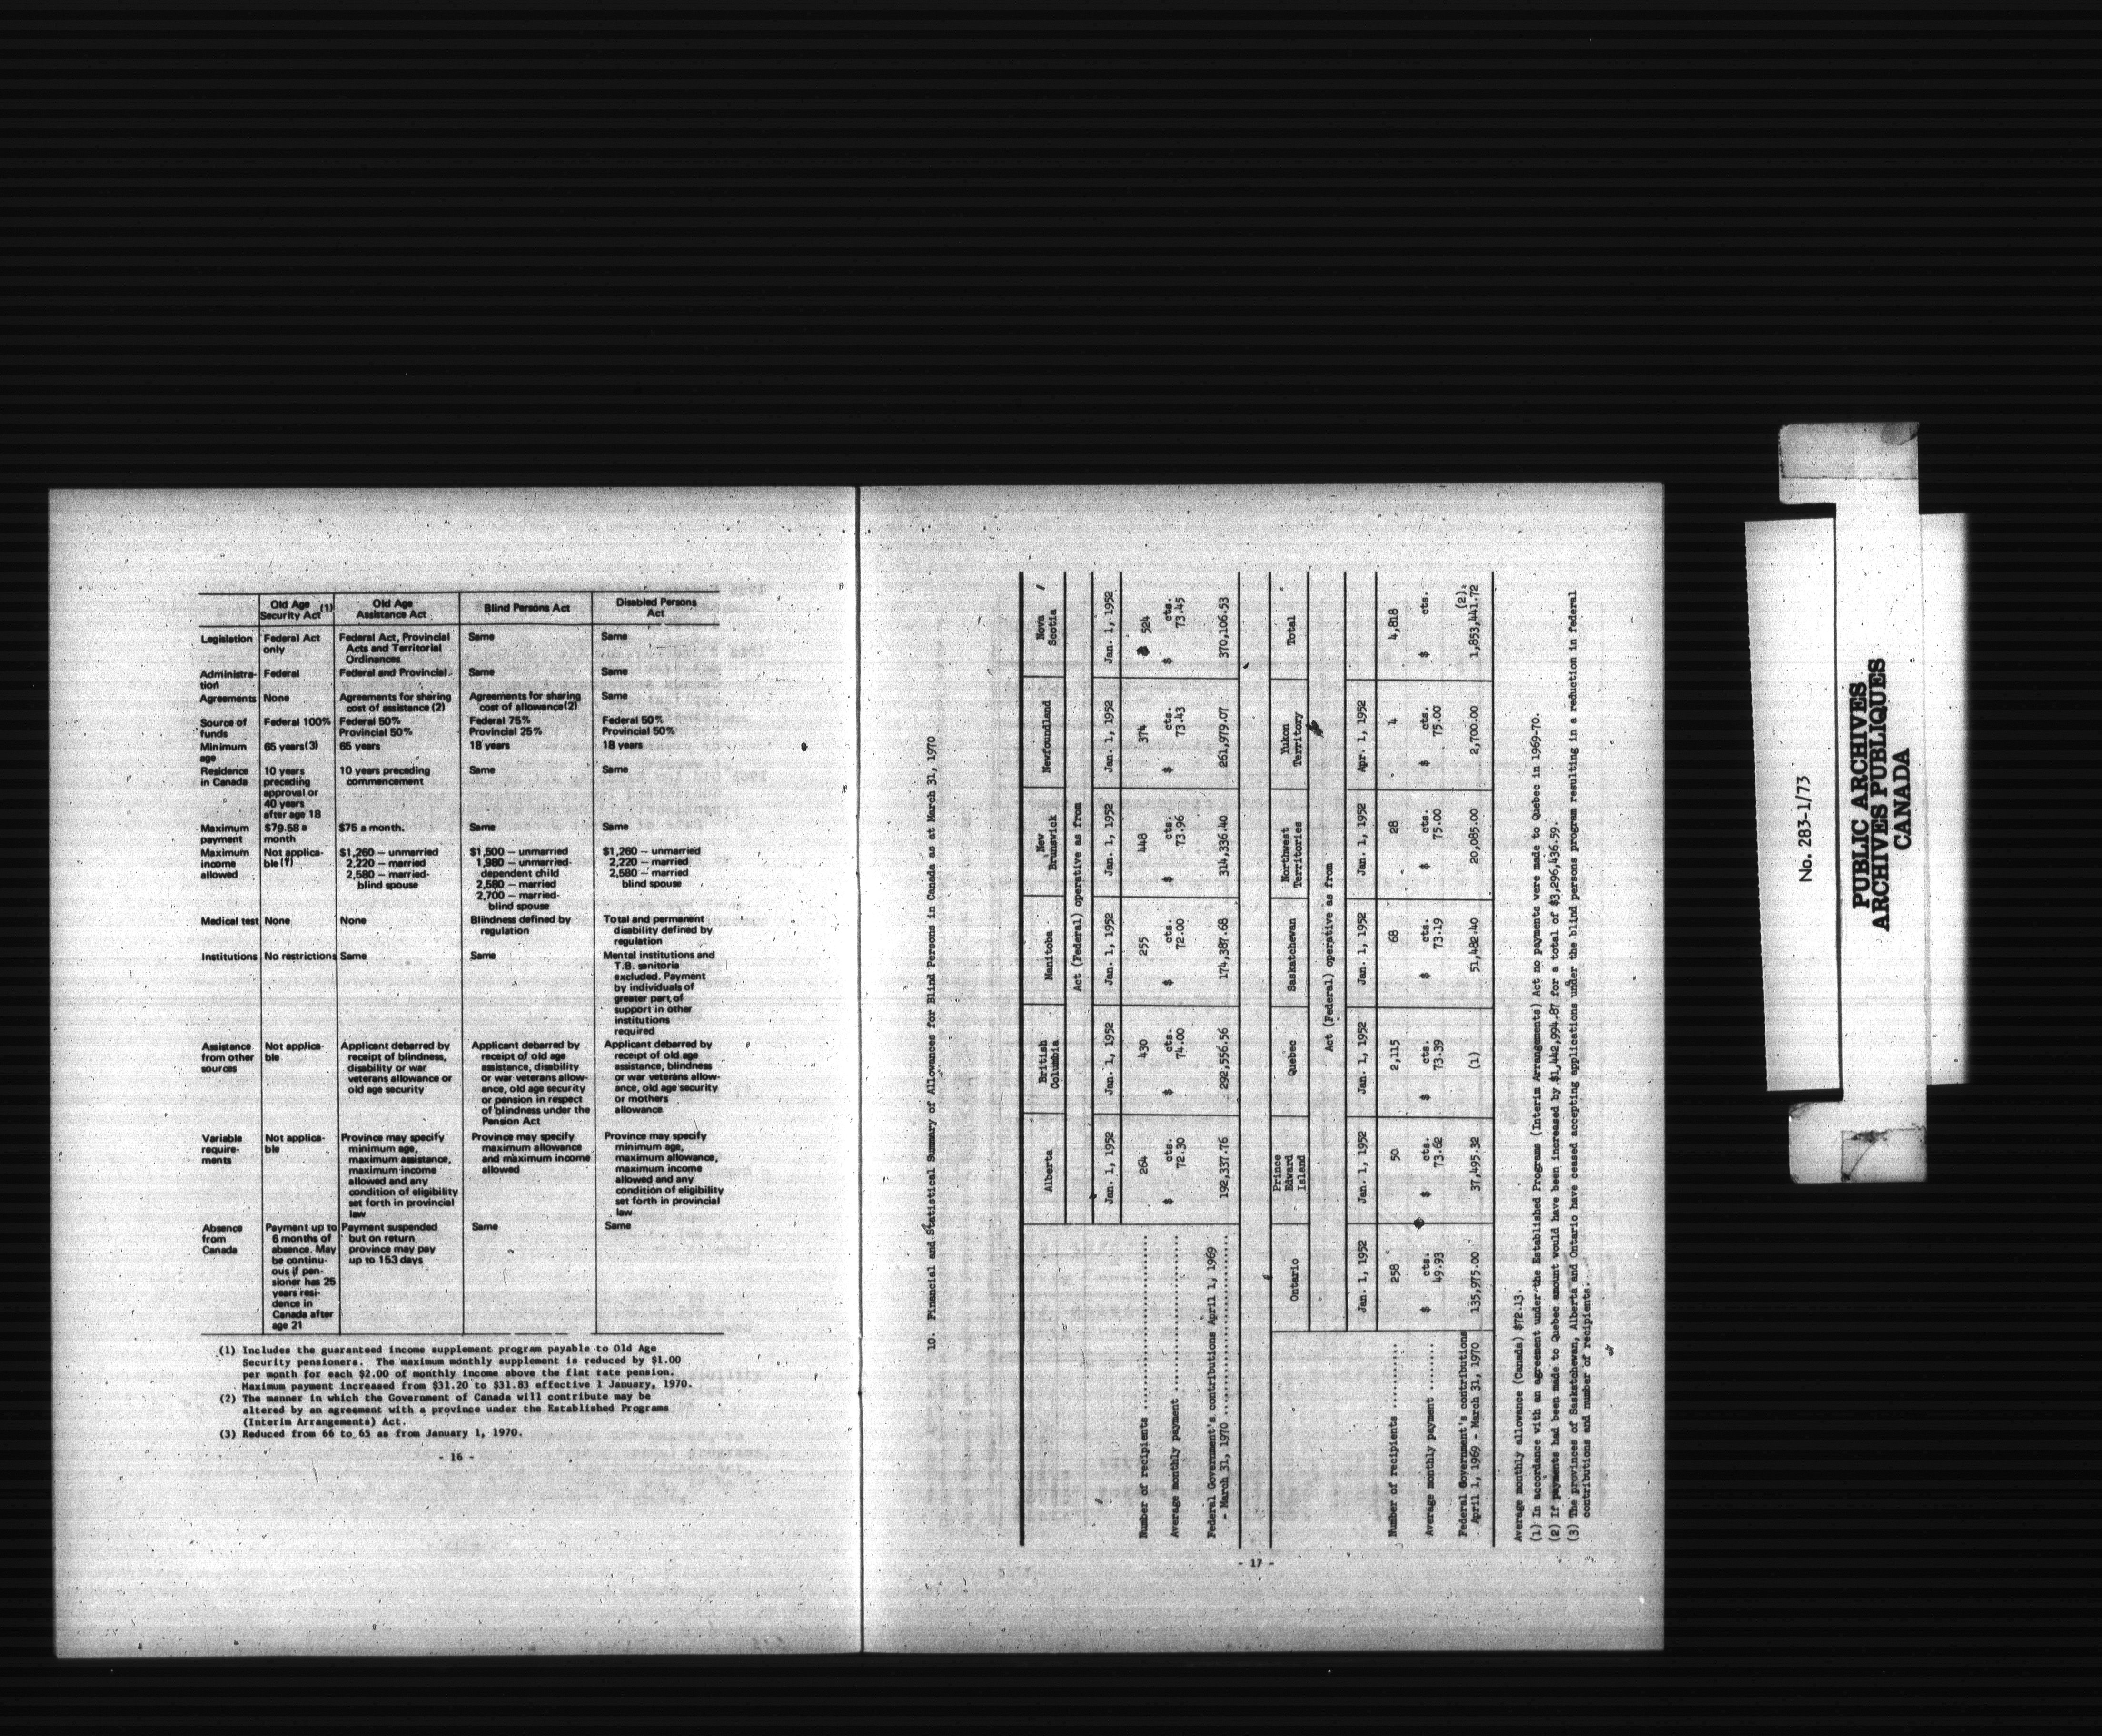 Old Age Security Act (1) | Old Age Assistance Act | Blind Persons Act | Disabled Persons Act
Legislation | Federal Act only | Federal Act, Provincial Acts and Territorial Ordinances | Same | Same
Administra-tion | Federal | Federal and Provincial | Same | Same
Agreements | None | Agreements for sharing cost of assistance (2) | Agreements for sharing cost of allowance(2) | Same
Source of funds | Federal 100% | Federal 50% Provincial 50% | Federal 75% Provincial 25% | Federal 50% Provincial 50%
Minimum age | 65 years(3) | 65 years | 18 years | 18 years
Residence in Canada | 10 years preceding approval or 40 years after age 18 | 10 years preceding commencement | Same | Same
Maximum payment | $79.58 a month | $75 a month. | Same | Same
Maximum income allowed | Not applica-ble (1) | $1,260 — unmarried 2,220 — married 2,580 — married-blind spouse | $1,500 — unmarried 1,980 — unmarried-dependent child 2,580 — married 2,700 — married-blind spouse | $1,260 — unmarried 2,220 — married 2,580 — married blind spouse
Medical test | None | None | Blindness defined by regulation | Total and permanent disability defined by regulation
Institutions | No restrictions | Same | Same | Mental institutions and T.B. sanitoria excluded. Payment by individuals of greater part of support in other institutions required
Assistance from other sources | Not applica-ble | Applicant debarred by receipt of blindness, disability or war veterans allowance or old age security | Applicant debarred by receipt of old age assistance, disability or war veterans allow-ance, old age security or pension in respect of blindness under the Pension Act | Applicant debarred by receipt of old age assistance, blindness or war veterans allow-ance, old age security or mothers allowance
Variable require-ments | Not applica-ble | Province may specify minimum age, maximum assistance, maximum income allowed and any condition of eligibility set forth in provincial law | Province may specify maximum allowance and maximum income allowed | Province may specify minimum age, maximum allowance, maximum income allowed and any condition of eligibility set forth in provincial law
Absence from Canada | Payment up to 6 months of absence. May be continu-ous if pen-sioner has 25 years resi-dence in Canada after age 21 | Payment suspended but on return province may pay up to 153 days | Same | Same
(1) Includes the guaranteed income supplement program payable to Old Age
Security pensioners. The maximum monthly supplement is reduced by $1.00
per month for each $2.00 of monthly income above the flat rate pension.
Maximum payment increased from $31.20 to $31.83 effective 1 January, 1970.
(2) The manner in which the Government of Canada will contribute may be
altered by an agreement with a province under the Established Programs
(Interim Arrangements) Act.
(3) Reduced from 66 to 65 as from January 1, 1970.
- 16 -
10. Financial and Statistical Summary of Allowances for Blind Persons in Canada as at March 31, 1970
Alberta | British Columbia | Manitoba | New Brunswick | Newfoundland | Nova Scotia
Act (Federal) operative as from
Jan. 1, 1952 | Jan. 1, 1952 | Jan. 1, 1952 | Jan. 1, 1952 | Jan. 1, 1952 | Jan. 1, 1952
Number of recipients | 264 | 430 | 255 | 448 | 374 | 524
$ cts. | $ cts. | $ cts. | $ cts. | $ cts. | $ cts.
Average monthly payment | 72.30 | 74.00 | 72.00 | 73.96 | 73.43 | 73.45
Federal Government's contributions April 1, 1969
- March 31, 1970 | 192,337.76 | 292,556.56 | 174,387.68 | 314,336.40 | 261,979.07 | 370,106.53
Ontario | Prince Edward Island | Quebec | Saskatchewan | Northwest Territories | Yukon Territory | Total
Act (Federal) operative as from
Jan. 1, 1952 | Jan. 1, 1952 | Jan. 1, 1952 | Jan. 1, 1952 | Jan. 1, 1952 | Apr. 1, 1952
Number of recipients | 258 | 50 | 2,115 | 68 | 28 | 4 | 4,818
$ cts. | $ cts. | $ cts. | $ cts. | $ cts. | $ cts. | $ cts.
Average monthly payment | 49.93 | 73.62 | 73.39 | 73.19 | 75.00 | 75.00
Federal Government's contributions
April 1, 1969 - March 31, 1970 | 135,975.00 | 37,495.32 | (1) | 51,482.40 | 20,085.00 | 2,700.00 | (2) 1,853,441.72
Average monthly allowance (Canada) $72.13.
(1) In accordance with an agreement under the Established Programs (Interim Arrangements) Act no payments were made to Quebec in 1969-70.
(2) If payments had been made to Quebec amount would have been increased by $1,442,994.87 for a total of $3,296,436.59.
(3) The provinces of Saskatchewan, Alberta and Ontario have ceased accepting applications under the blind persons program resulting in a reduction in federal
contributions and number of recipients.
- 17 -
No. 283-1/73
PUBLIC ARCHIVES
ARCHIVES PUBLIQUES
CANADA